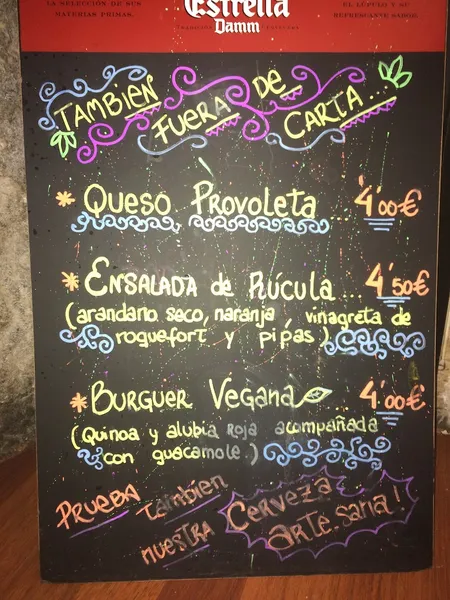 LA SELECCIÓN DE SUS
MATERIAS PRIMAS.
Estrella
Damm
EL LÚPULO Y SU
REFRESCANTE SABOR
TAMBIEN
FUERA DE
CARTA...
* QUESO PROVOLETA... 4'00€
* ENSALADA de RÚCULA... 4'50€
(arandano seco, naranja, vinagreta de
roquefort y pipas)
* BURGUER VEGANA 4'00€
(Quinoa y alubia roja acompañada
con guacamole.)
PRUEBA También
NUESTRA Cerveza
Artesana!